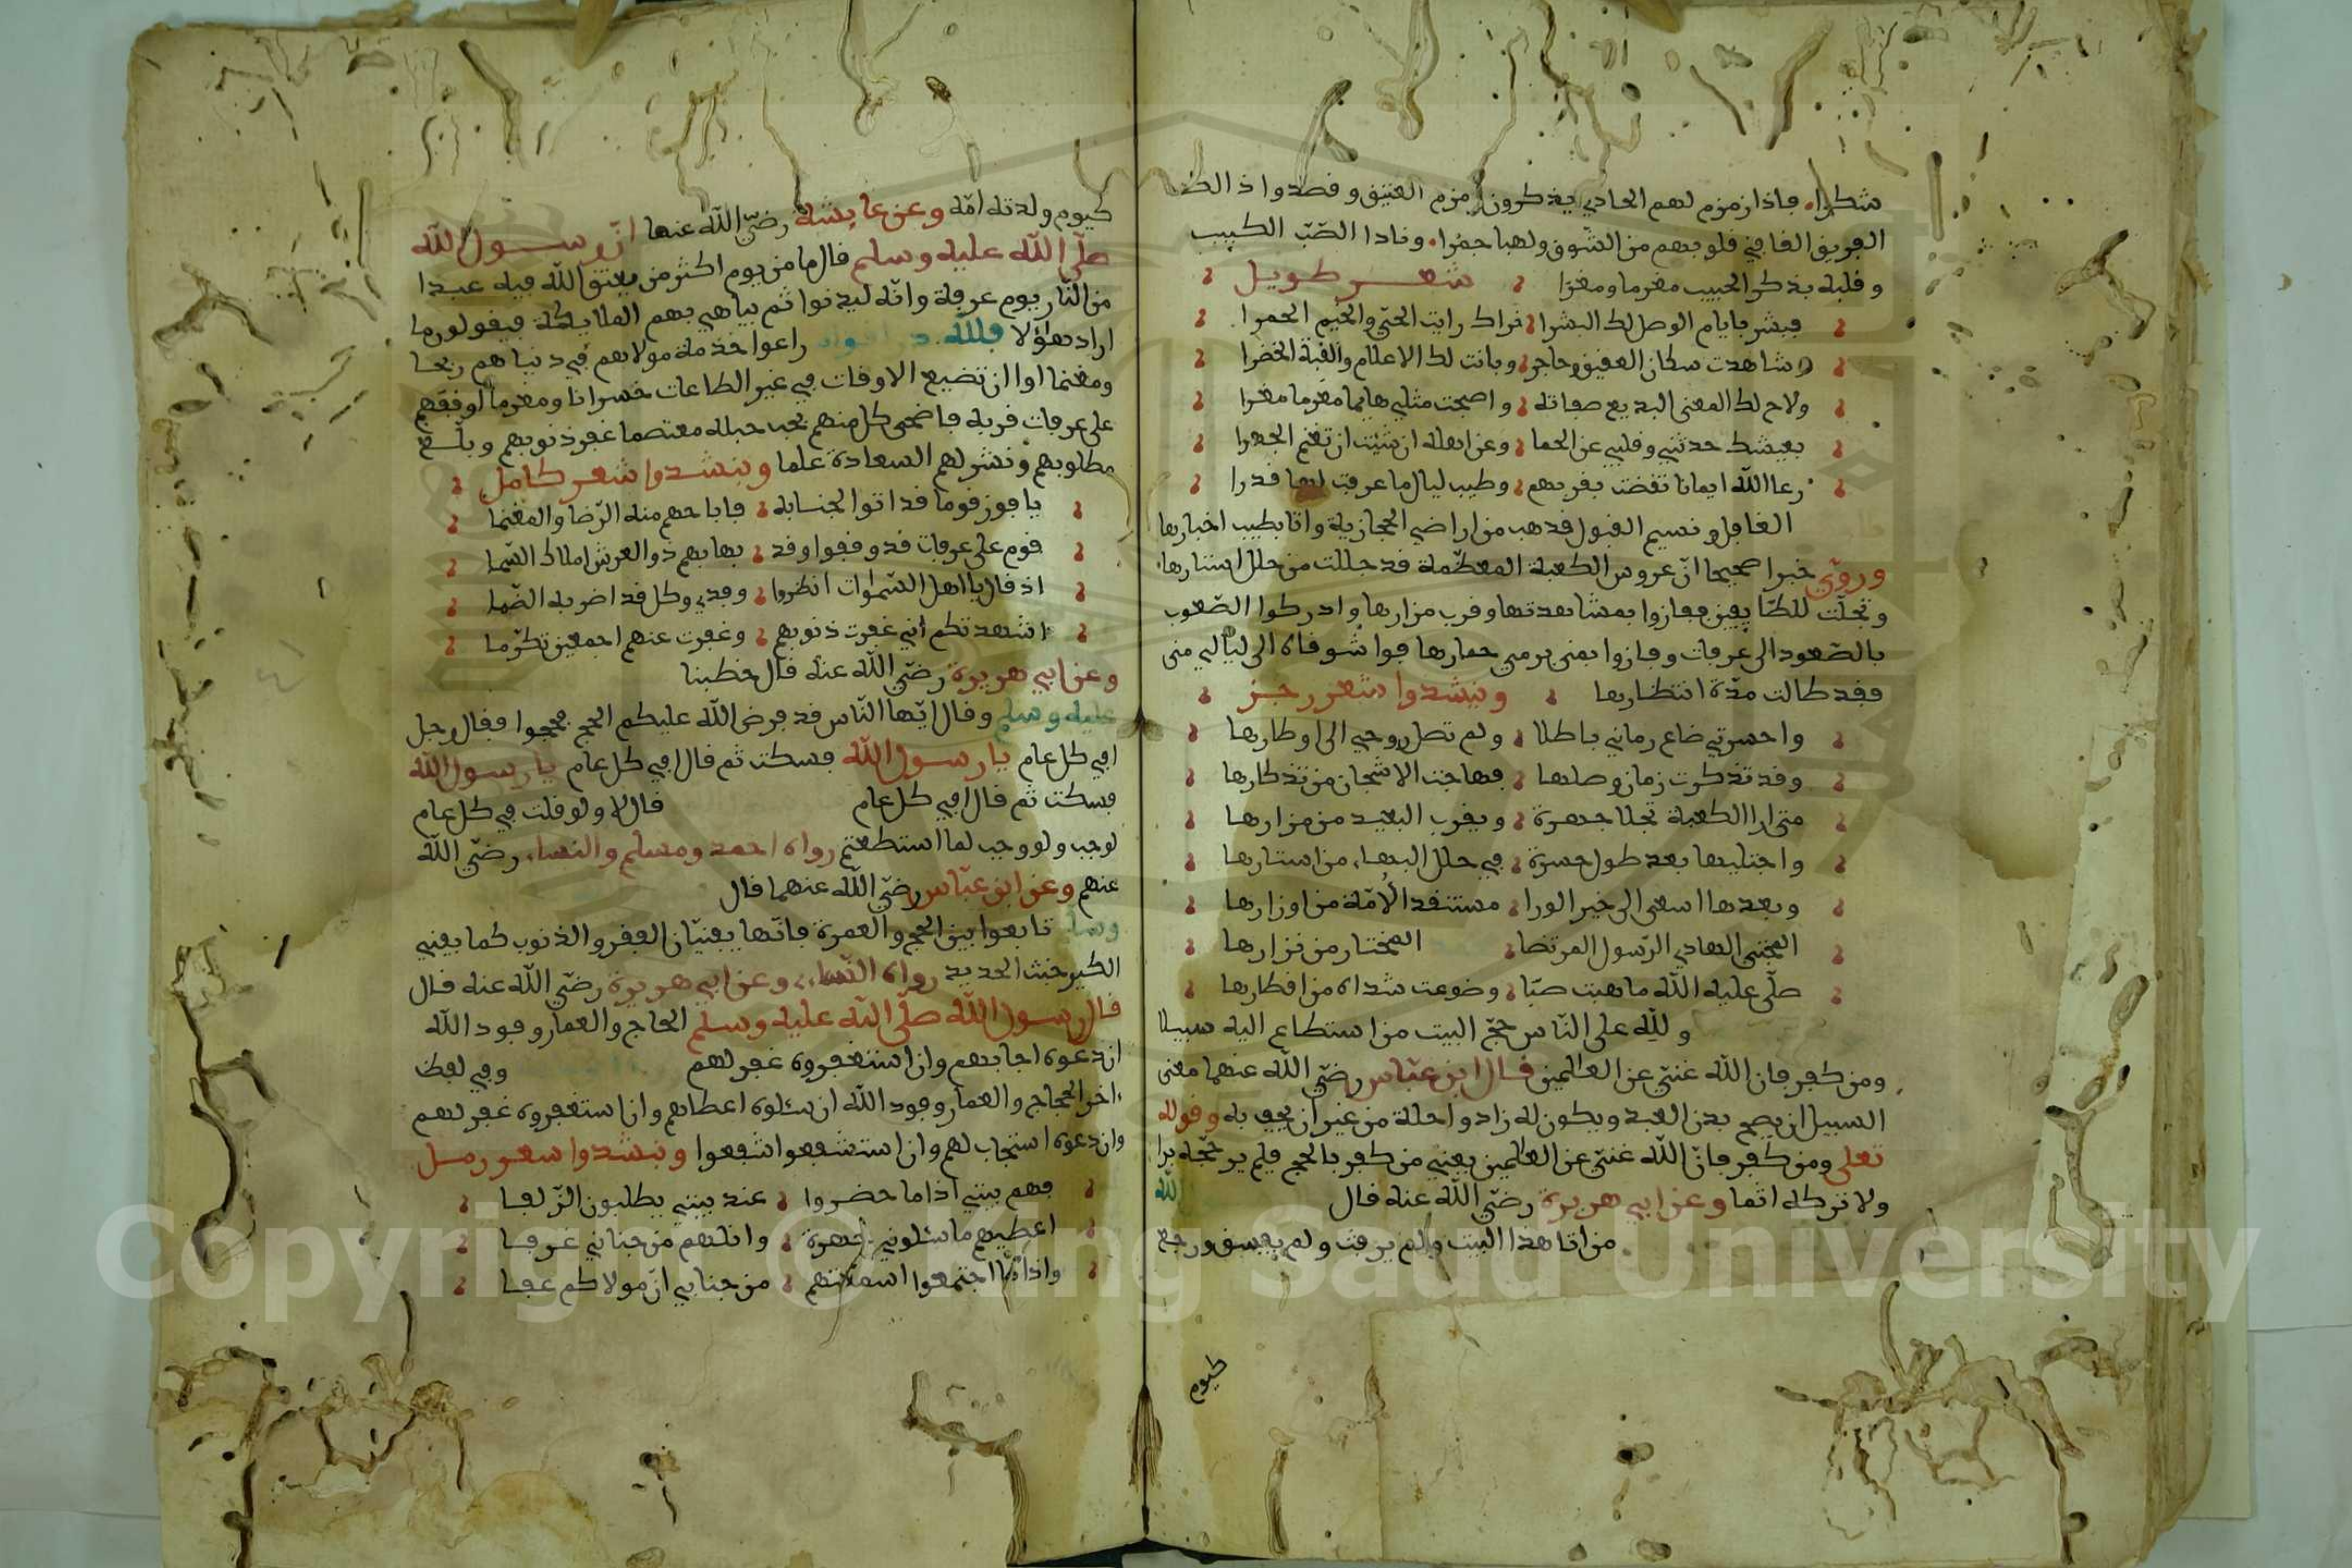 شكرا. فاذا زمزم لهم الحادي يذكرون زمزم العتيق وقصدوا ذالك
الفريق القا في قلوبهم من الشوق ولهبا جمرا. ونادا الصّبّ الكييب
وقلبه بذكر الحبيب مغرما ومغرا شعر طويل
فبشر بايام الوصل لك البشرا تراك رايت الحيّ والخيم الحمرا
وشاهدت سكان العقيق وحاجر وبانت لك الاعلام والقبة الخضرا
ولاح لك المغنى البديع صفاته واصبحت مثلي هايما مغرما مغرا
بعيشك حدثني وقلبي عن الحما وعن اهله ان شيت ان تغنم الجهرا
رعا الله ايمانا تقضت بقربهم وطيب ليال ما عرفت لها قدرا
الغافل ونسيم القبول قد هب من اراضي الحجازية واتا بطيب اخبارها
وروي خبرا صحيحا انّ عروس الكعبة المعظّمة قد جللت من حلل استارها
وتجلّت للطّايفين ففازوا بمشاهدتها وقرب مزارها وادركوا الصّعوب
بالصّعود الى عرفات وفازوا بمنى برمي جمارها فواشوقاه الى ليالي منى
فقد طالت مدّة انتظارها وينشدوا شعر رجز
واحسرتي ضاع زماني باطلا ولم تصل روحي الى اوطارها
وقد تذكرت زمان وصلها فهاجت الاشجان من تذكارها
متى ارا الكعبة تجلا جهرة ويقرب البعيد من مزارها
واجتليها بعد طول حسرة في حلل البهاء من استارها
وبعدها اسعى الى خير الورا مستنقد الامّة من اوزارها
المجتبى الهادي الرّسول المرتضا المختار من نزارها
صلّى عليه الله ما هبت صبّا وضوعت شداه من اقطارها
ولله على النّاس حجّ البيت من استطاع اليه سبيلا
ومن كفر فان الله غنيّ عن العالمين قال ابن عبّاس رضي الله عنهما معنى
السبيل ان يصح بدن العبد ويكون له زاد وراحلة من غير ان يجحف به وقوله
تعلى ومن كفر فانّ الله غنيّ عن العالمين يعني من كفر بالحج فلم ير حجّه برا
ولا تركه اثما وعن ابي هريرة رضيّ الله عنه قال الله
من اتا هذا البيت ولم يرفت ولم يفسق ورجع
كيوم
كيوم ولدته امّه وعن عايشة رضيّ الله عنها انّ رسول الله
صلّى الله عليه وسلم قال ما من يوم اكثر من يعتق الله فيه عبدا
من النّار يوم عرفة وانّه ليدنوا ثم يباهي بهم الملايكة فيقولون ما
اراد هؤلا فلله در اقوام راعوا خدمة مولاهم في دنياهم ربحا
ومغنما اوا ان تضيع الاوقات في غير الطاعات خسرانا ومغرما اوقفهم
على عرفات قربه فاضحى كل منهم بحب حبله معتصما غفر ذنوبهم وبلّغهم
مطلوبهم ونشر لهم السعادة علما وينشدوا شعر كامل
يا فوز قوما قد اتوا لجنابه فاباحهم منه الرّضا والمغنما
قوم على عرفات قد وقفوا وقد بها بهم ذو العرش املاك السّما
اذ قال يا اهل السّموات انظروا وفدي وكل قد اضر به الضّما
اشهدتكم اني غفرت ذنوبهم وعفوت عنهم اجمعين تكرّما
وعن ابي هريرة رضيّ الله عنه قال خطبنا
عليه وسلم وقال ايّها النّاس قد فرض الله عليكم الحج فحجوا فقال رجل
افي كل عام يا رسول الله فسكت ثم قال افي كل عام يا رسول الله
فسكت ثم قال افي كل عام قال لا ولو قلت في كل عام
لوجب ولو وجب لما استطعتم رواه احمد ومسلم والنساء رضيّ الله
عنهم وعن ابن عبّاس رضيّ الله عنهما قال
وسلم تابعوا بين الحج والعمرة فانّهما يعنيّان الفقر والذنوب كما يعني
الكير خبث الحديد رواه النّساء وعن ابي هريرة رضيّ الله عنه قال
قال رسول الله صلّى الله عليه وسلم الحاج والعمار وفود الله
ان دعوه اجابهم وان استغفروه غفر لهم وفي لفظ
اخر الحجاج والعمار وفود الله ان سئلوه اعطاهم وان استغفروه غفر لهم
وان دعوه استجاب لهم وان استشفعوا شفعوا وينشدوا شعر رمل
فهم بيتي اذا ما حضروا عند بيتي يطلبون الزّلفا
اعطيهم ما سئلوني جهرة وانلهم من جناتي غرفا
واذا ما اجتمعوا اسمعتهم من جنابي انّ مولاكم عفا
Copyright © King Saud University